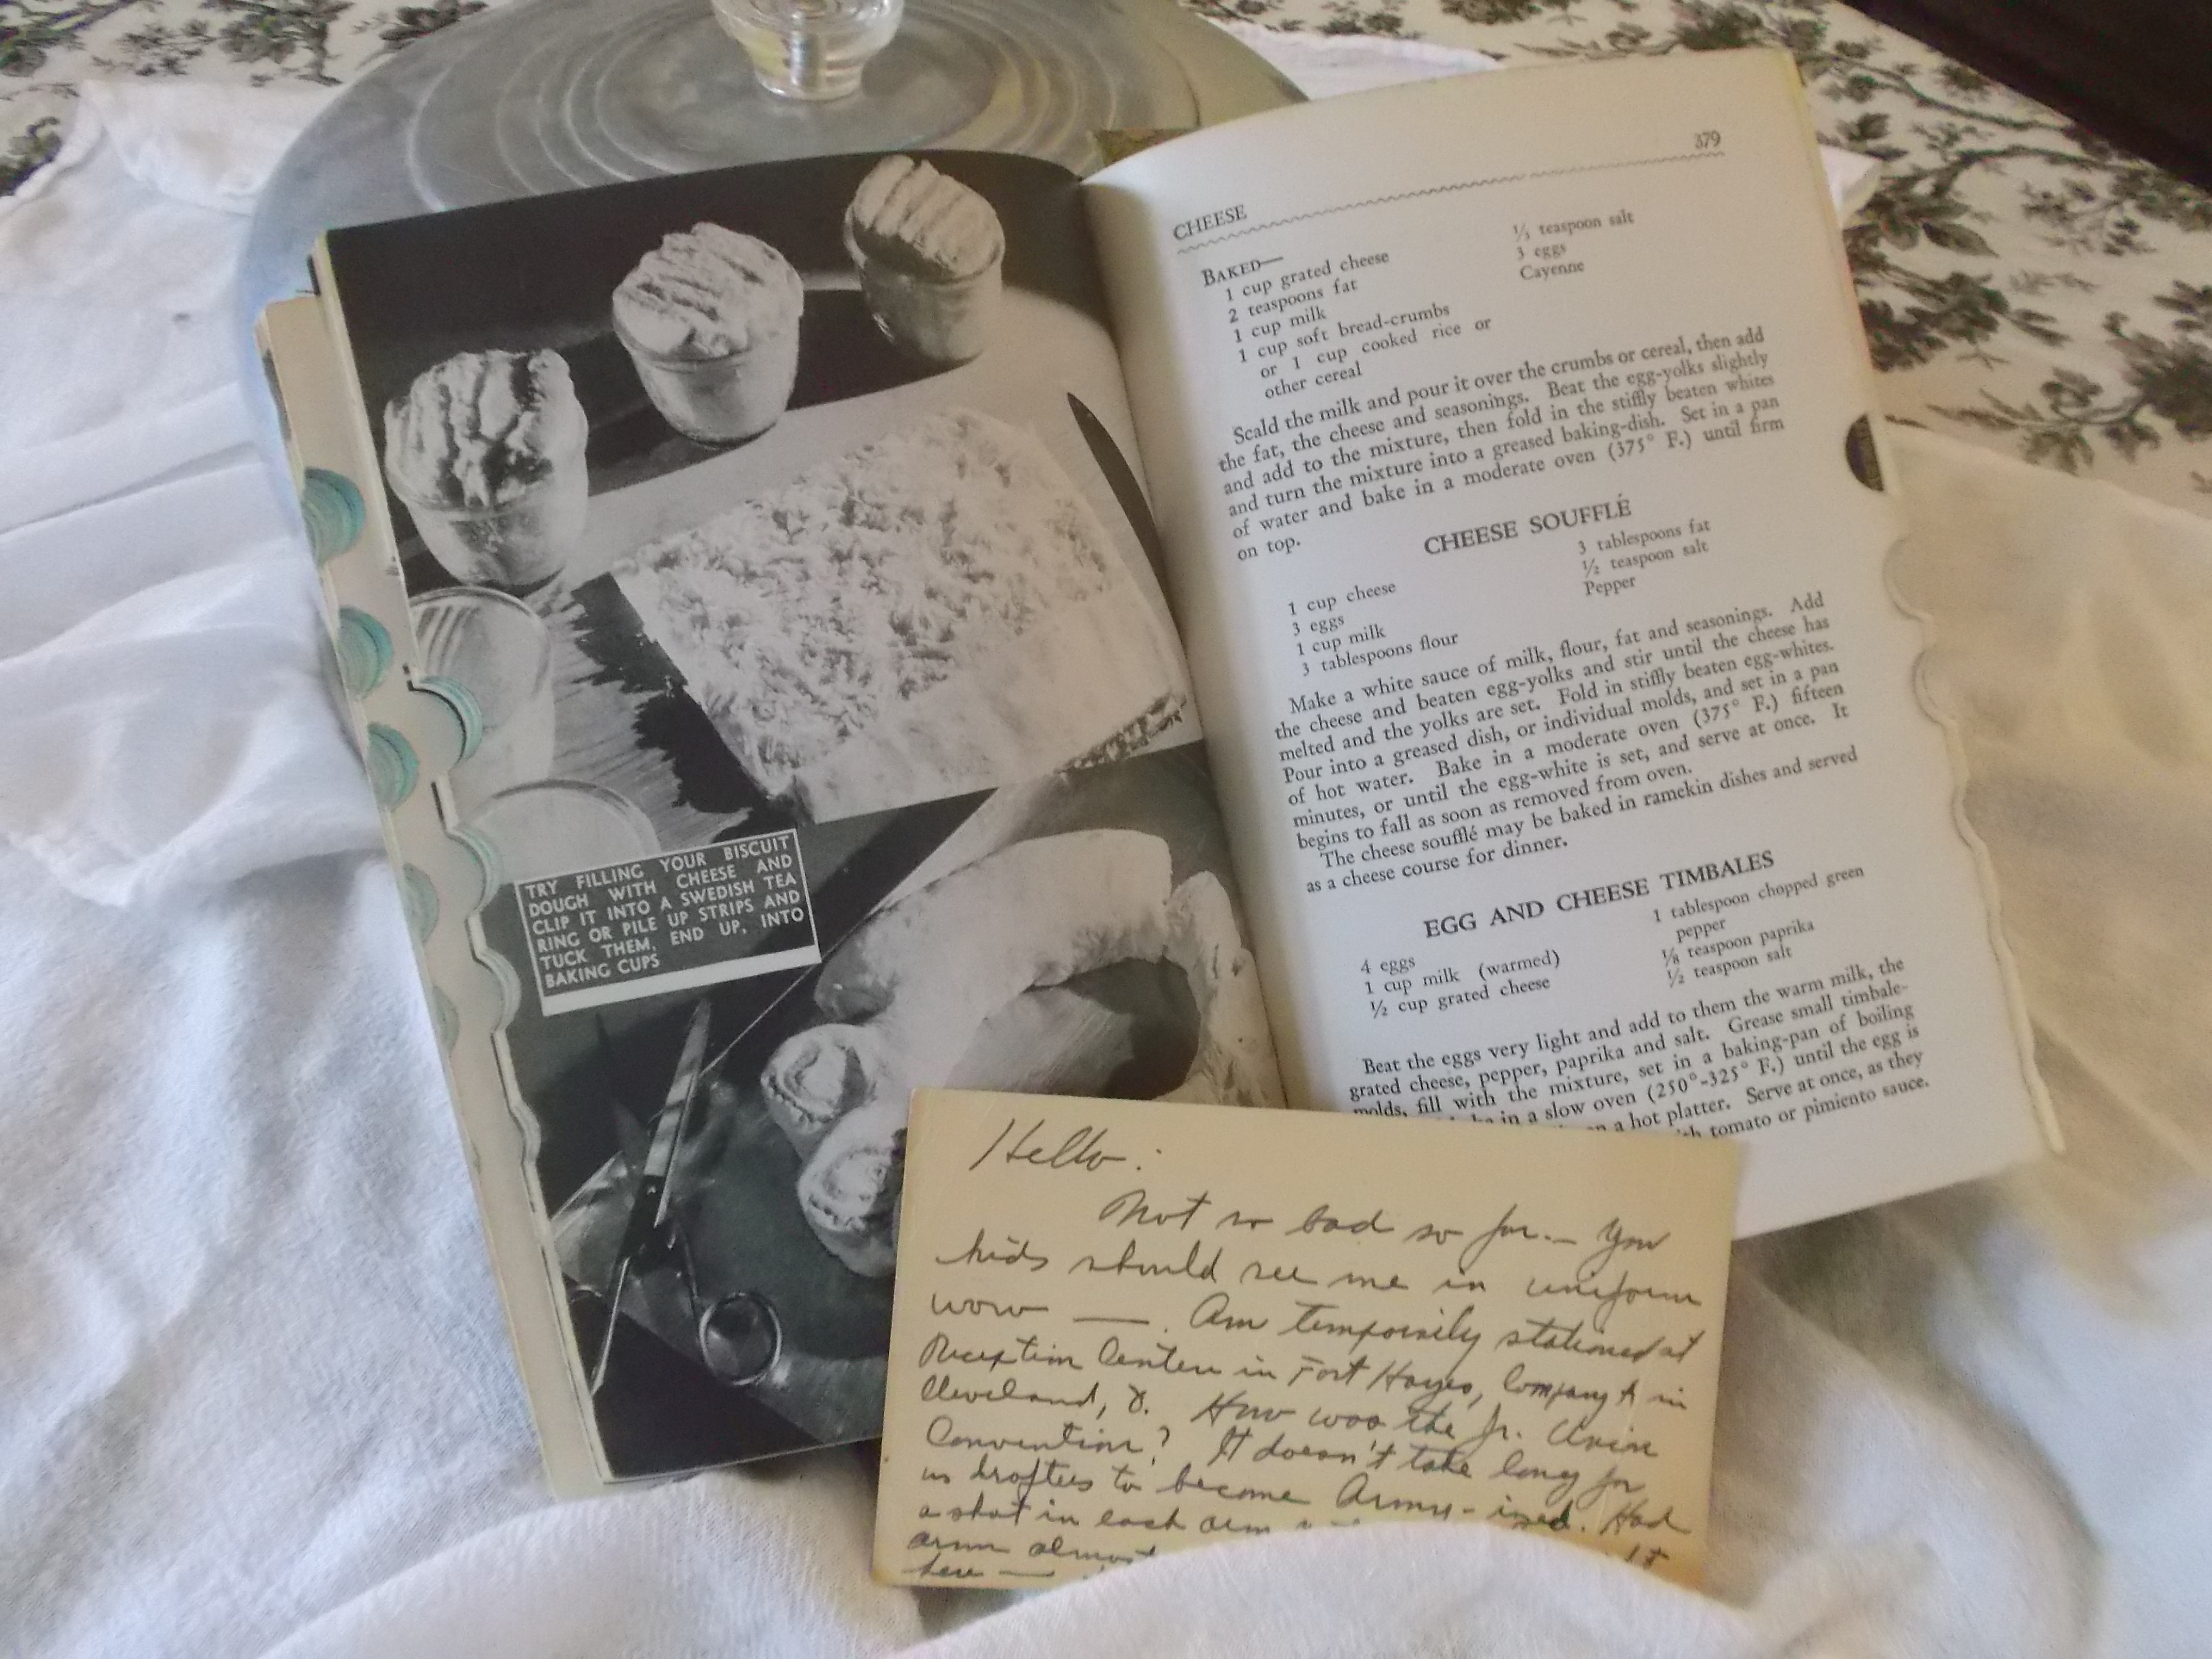 TRY FILLING YOUR BISCUIT
DOUGH WITH CHEESE AND
CLIP IT INTO A SWEDISH TEA
RING OR PILE UP STRIPS AND
TUCK THEM, END UP, INTO
BAKING CUPS
379
CHEESE
BAKED—
1 cup grated cheese
2 teaspoons fat
1 cup milk
1 cup soft bread-crumbs
or 1 cup cooked rice or
other cereal
⅓ teaspoon salt
3 eggs
Cayenne
Scald the milk and pour it over the crumbs or cereal, then add
the fat, the cheese and seasonings. Beat the egg-yolks slightly
and add to the mixture, then fold in the stiffly beaten whites
and turn the mixture into a greased baking-dish. Set in a pan
of water and bake in a moderate oven (375° F.) until firm
on top.
CHEESE SOUFFLÉ
1 cup cheese
3 eggs
1 cup milk
3 tablespoons flour
3 tablespoons fat
½ teaspoon salt
Pepper
Make a white sauce of milk, flour, fat and seasonings. Add
the cheese and beaten egg-yolks and stir until the cheese has
melted and the yolks are set. Fold in stiffly beaten egg-whites.
Pour into a greased dish, or individual molds, and set in a pan
of hot water. Bake in a moderate oven (375° F.) fifteen
minutes, or until the egg-white is set, and serve at once. It
begins to fall as soon as removed from oven.
The cheese soufflé may be baked in ramekin dishes and served
as a cheese course for dinner.
EGG AND CHEESE TIMBALES
4 eggs
1 cup milk (warmed)
½ cup grated cheese
1 tablespoon chopped green
pepper
⅛ teaspoon paprika
½ teaspoon salt
Beat the eggs very light and add to them the warm milk, the
grated cheese, pepper, paprika and salt. Grease small timbale-
molds, fill with the mixture, set in a baking-pan of boiling
in a slow oven (250°-325° F.) until the egg is
on a hot platter. Serve at once, as they
tomato or pimiento sauce.
Hello:
Not so bad so far.— You
kids should see me in uniform
wow —. Am temporily stationed at
Reception Center in Fort Hayes, Company A in
Cleveland, O. How was the Jr.
Convention? It doesn't take long for
us draftees to become Army-ized. Had
a shot in each arm
arm almost
here —